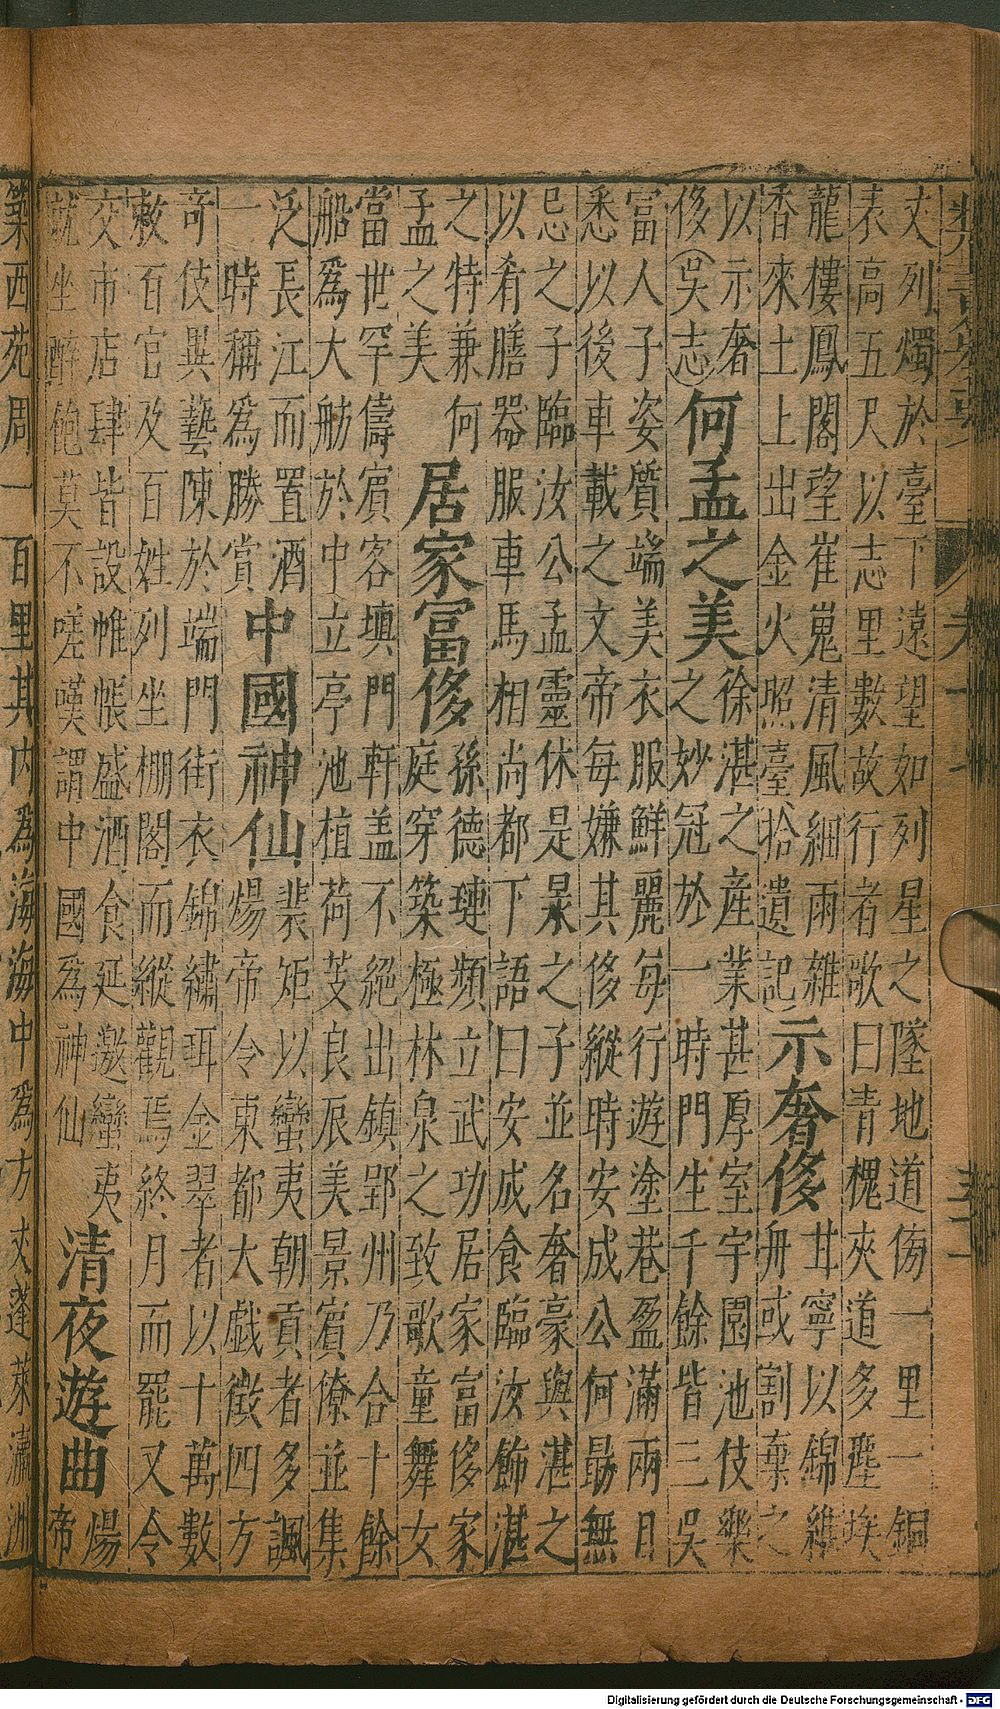 丈列燭於臺下遠望如列星之墜地道傍一里一銅
表高五尺以志里數故行者歌曰青槐夾道多塵埃
龍樓鳳閣望崔嵬清風細雨雜
香來土上出金火照臺(拾遺記)
示奢侈
甘寧以錦維
舟或割棄之
以示奢
侈(吳志)
何孟之美
徐湛之產業甚厚室宇園池伎樂
之妙冠於一時門生千餘皆三吳
富人子姿質端美衣服鮮麗每行遊塗巷盈滿兩日
悉以後車載之文帝每嫌其侈縱時安成公何勗無
忌之子臨汝公孟靈休是杲之子並名奢豪與湛之
以肴膳器服車馬相尚都下語曰安成食臨汝飾湛
之特兼何
孟之美
居家富侈
孫德璉頻立武功居家富侈家
庭穿築極林泉之致歌童舞女
當世罕儔賓客填門軒盖不絕出鎮郢州乃合十餘
船為大舫於中立亭池植荷芰良辰美景賓僚並集
泛長江而置酒
一時稱為勝賞
中國神仙
裴矩以蠻夷朝貢者多諷
煬帝令東都大戲徵四方
奇伎異藝陳於端門街衣錦繡珥金翠者以十萬數
敕百官及百姓列坐棚閣而縱觀焉終月而罷又令
交市店肆皆設帷帳盛酒食延邀蠻夷
就坐醉飽莫不嗟嘆謂中國為神仙
清夜遊曲
煬
帝
築西苑周一百里其内為海海中為方丈蓬萊瀛洲
Digitalisierung gefördert durch die Deutsche Forschungsgemeinschaft - DFG